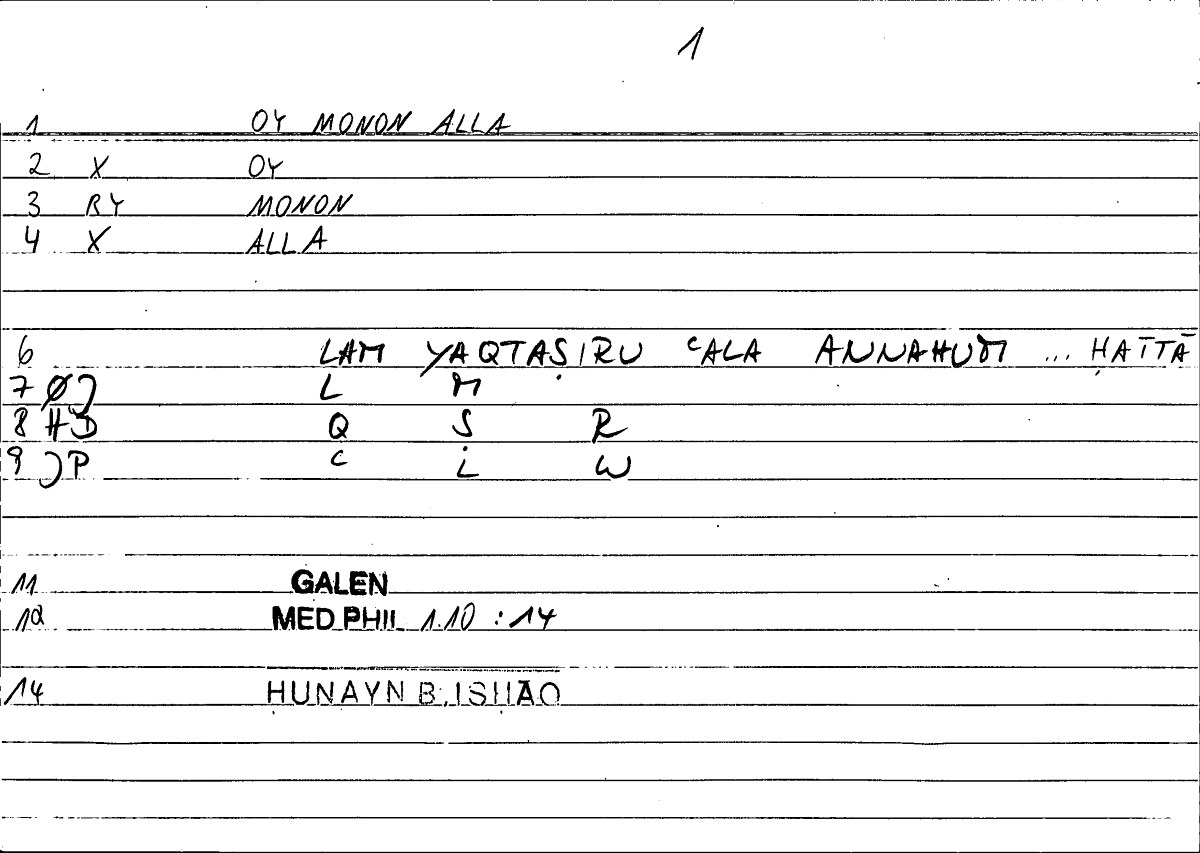 1
1 OY MONON ALLA
2 X OY
3 RY MONON
4 X ALLA
6 LAM YAQTAṢIRU ʿALA ANNAHUM ... ḤATTĀ
7 L M
8 Q Ṣ R
9 ʿ L W
11 GALEN
12 MED PHIL 1.10 : 14
14 ḤUNAYN B. ISḤĀQ